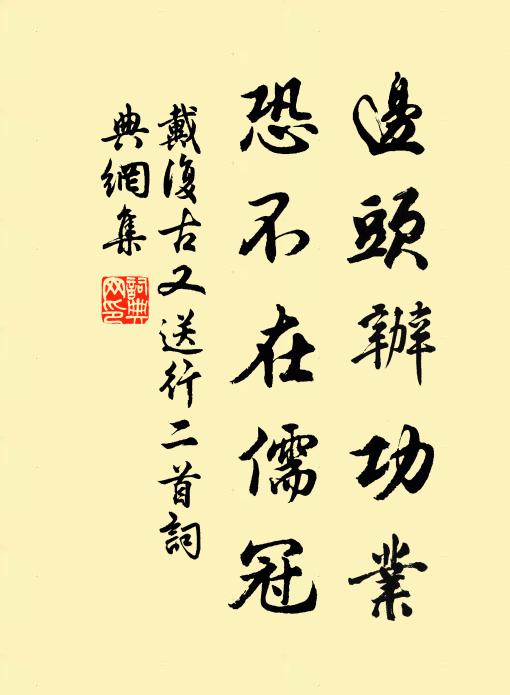 邊頭辦功業
恐不在儒冠
戴復古又送行二首詞
典網集
詞典
网印